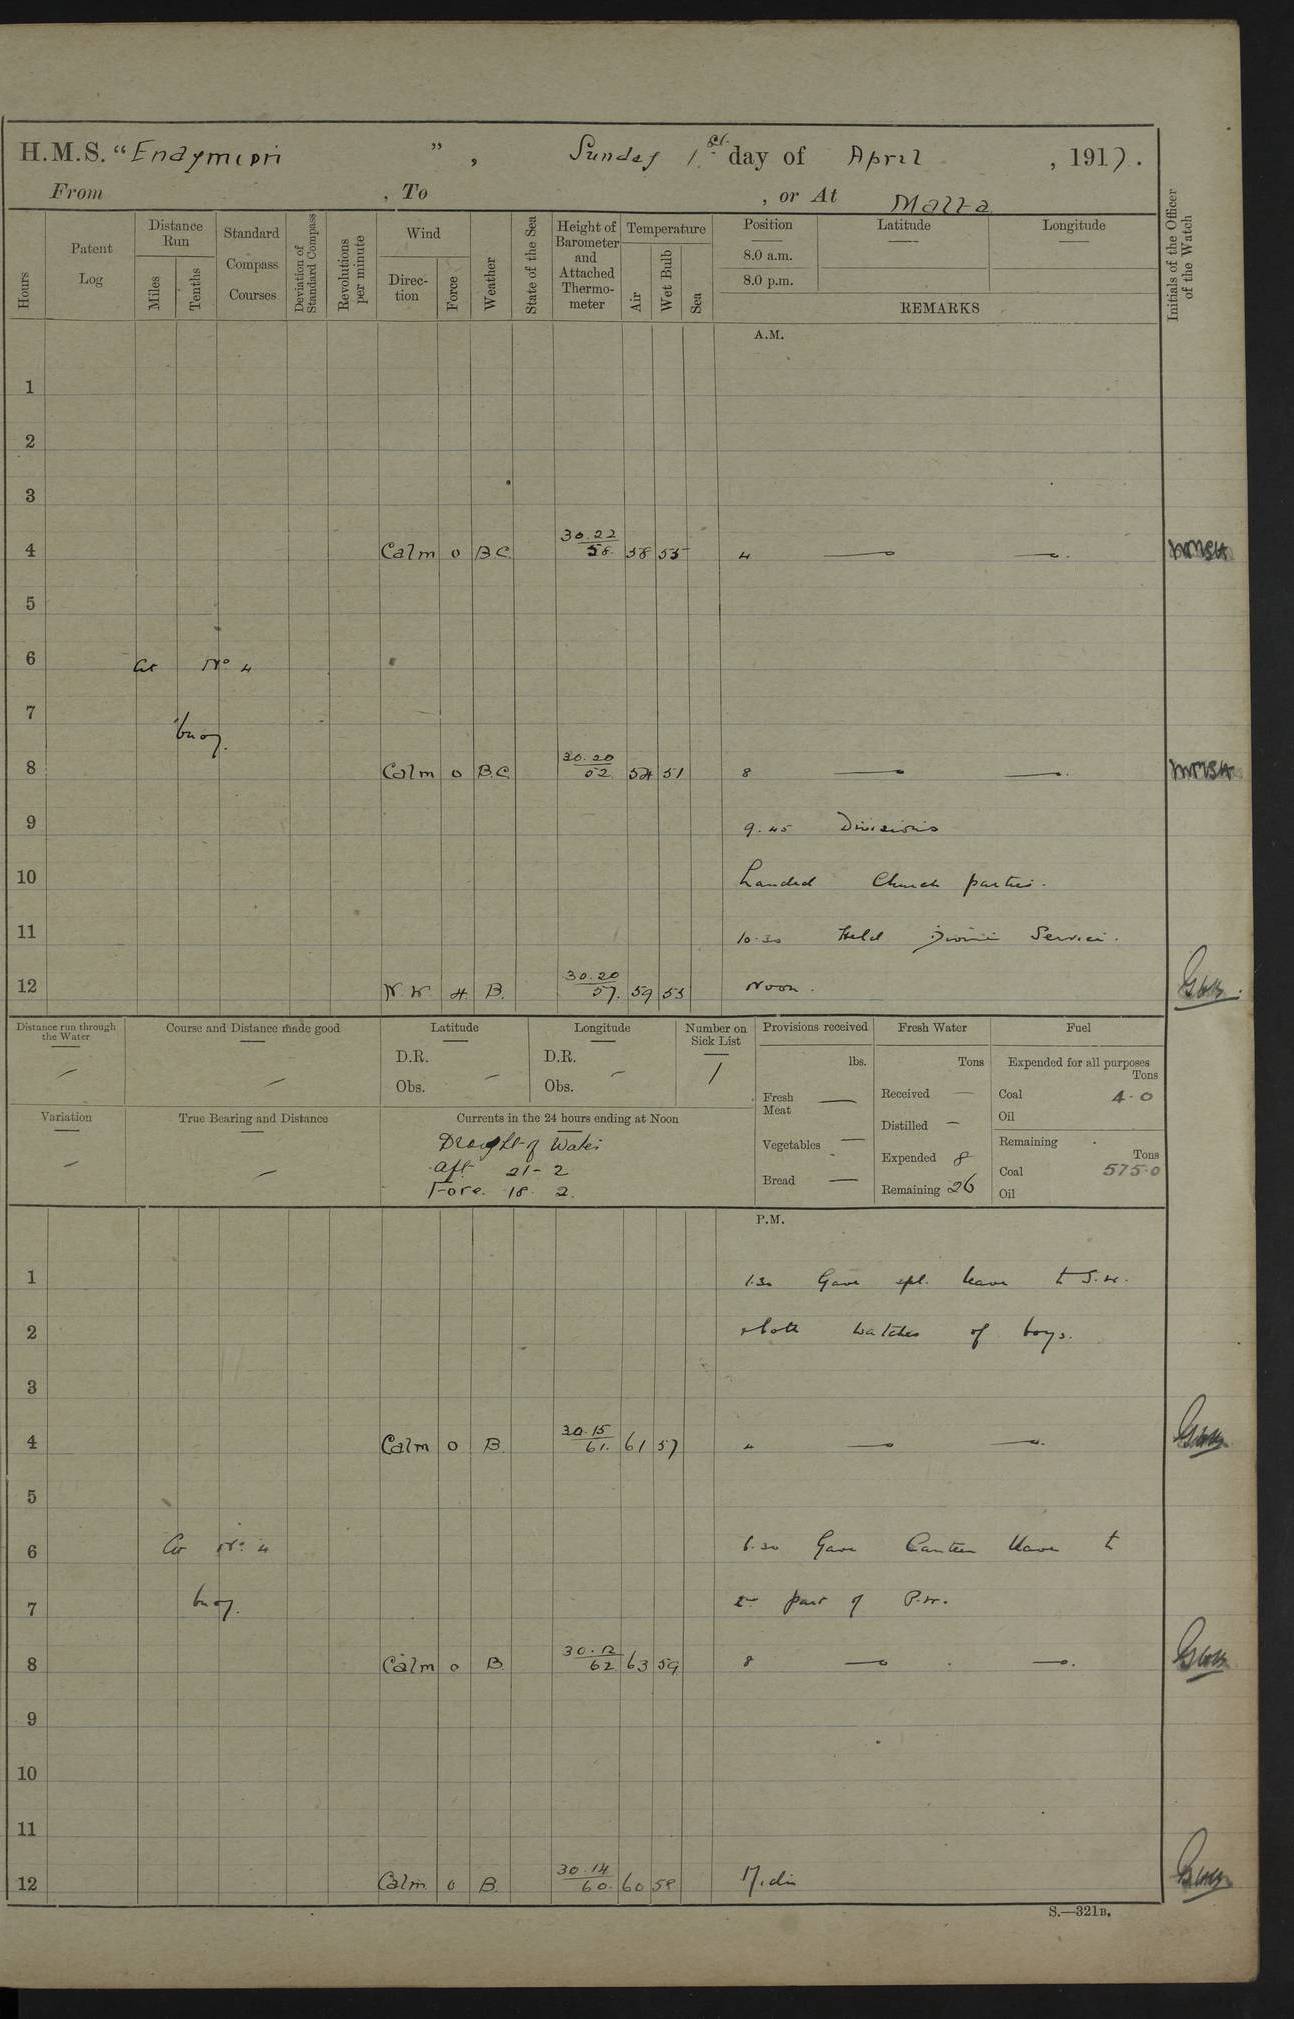 H.M.S. "Endymion", Sunday 1st day of April, 1917.
From , To , or At Malta
Hours
Patent Log
Distance Run
Miles
Tenths
Standard Compass Courses
Deviation of Standard Compass
Revolutions per minute
Wind
Direction
Force
Weather
State of the Sea
Height of Barometer and Attached Thermometer
Temperature
Air
Wet Bulb
Sea
Position
Latitude
Longitude
8.0 a.m.
8.0 p.m.
REMARKS
Initials of the Officer of the Watch
A.M.
1
2
3
4 Calm 0 B.C. 30.22 58 58 55 4
5
6 At No 4
7 buoy.
8 Calm 0 B.C. 30.20 52 54 51 8
9 9.45 Divisions
10 Landed Church parties.
11 10.30 Held Divine Service.
12 N.W. 4 B. 30.20 57. 59 53 Noon.
Distance run through the Water
Course and Distance made good
Latitude
D.R.
Obs.
Longitude
D.R.
Obs.
Number on Sick List
1
Provisions received
lbs.
Fresh Meat
Vegetables
Bread
Fresh Water
Tons
Received
Distilled
Expended 8
Remaining 26
Fuel
Expended for all purposes
Tons
Coal 4.0
Oil
Remaining
Tons
Coal 575.0
Oil
Variation
True Bearing and Distance
Currents in the 24 hours ending at Noon
Draught of Water
Aft 21-2
Fore. 18 2.
P.M.
1 1.30 Gave spl. leave to S.W.
2 & both watches of boys.
3
4 Calm 0 B 30.15 61. 61 57 4
5
6 At No 4 6.30 Gave Canteen leave to
7 buoy. part of P.W.
8 Calm 0 B. 30.12 62 63 59 8
9
10
11
12 Calm. 0 B. 30.14 60. 60 58 Mid.
S.—321B.